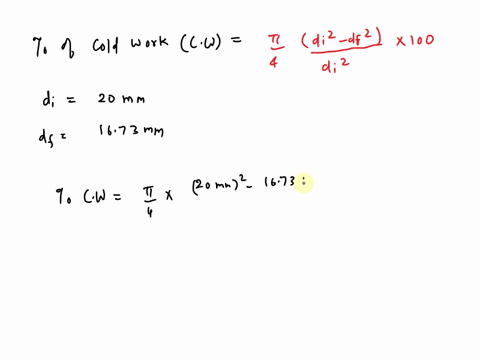 % of Cold work (C.W) = π/4 (di² - df²)/di² × 100
di = 20 mm
df = 16.73 mm
% C.W = π/4 × (20 mm)² - 16.73